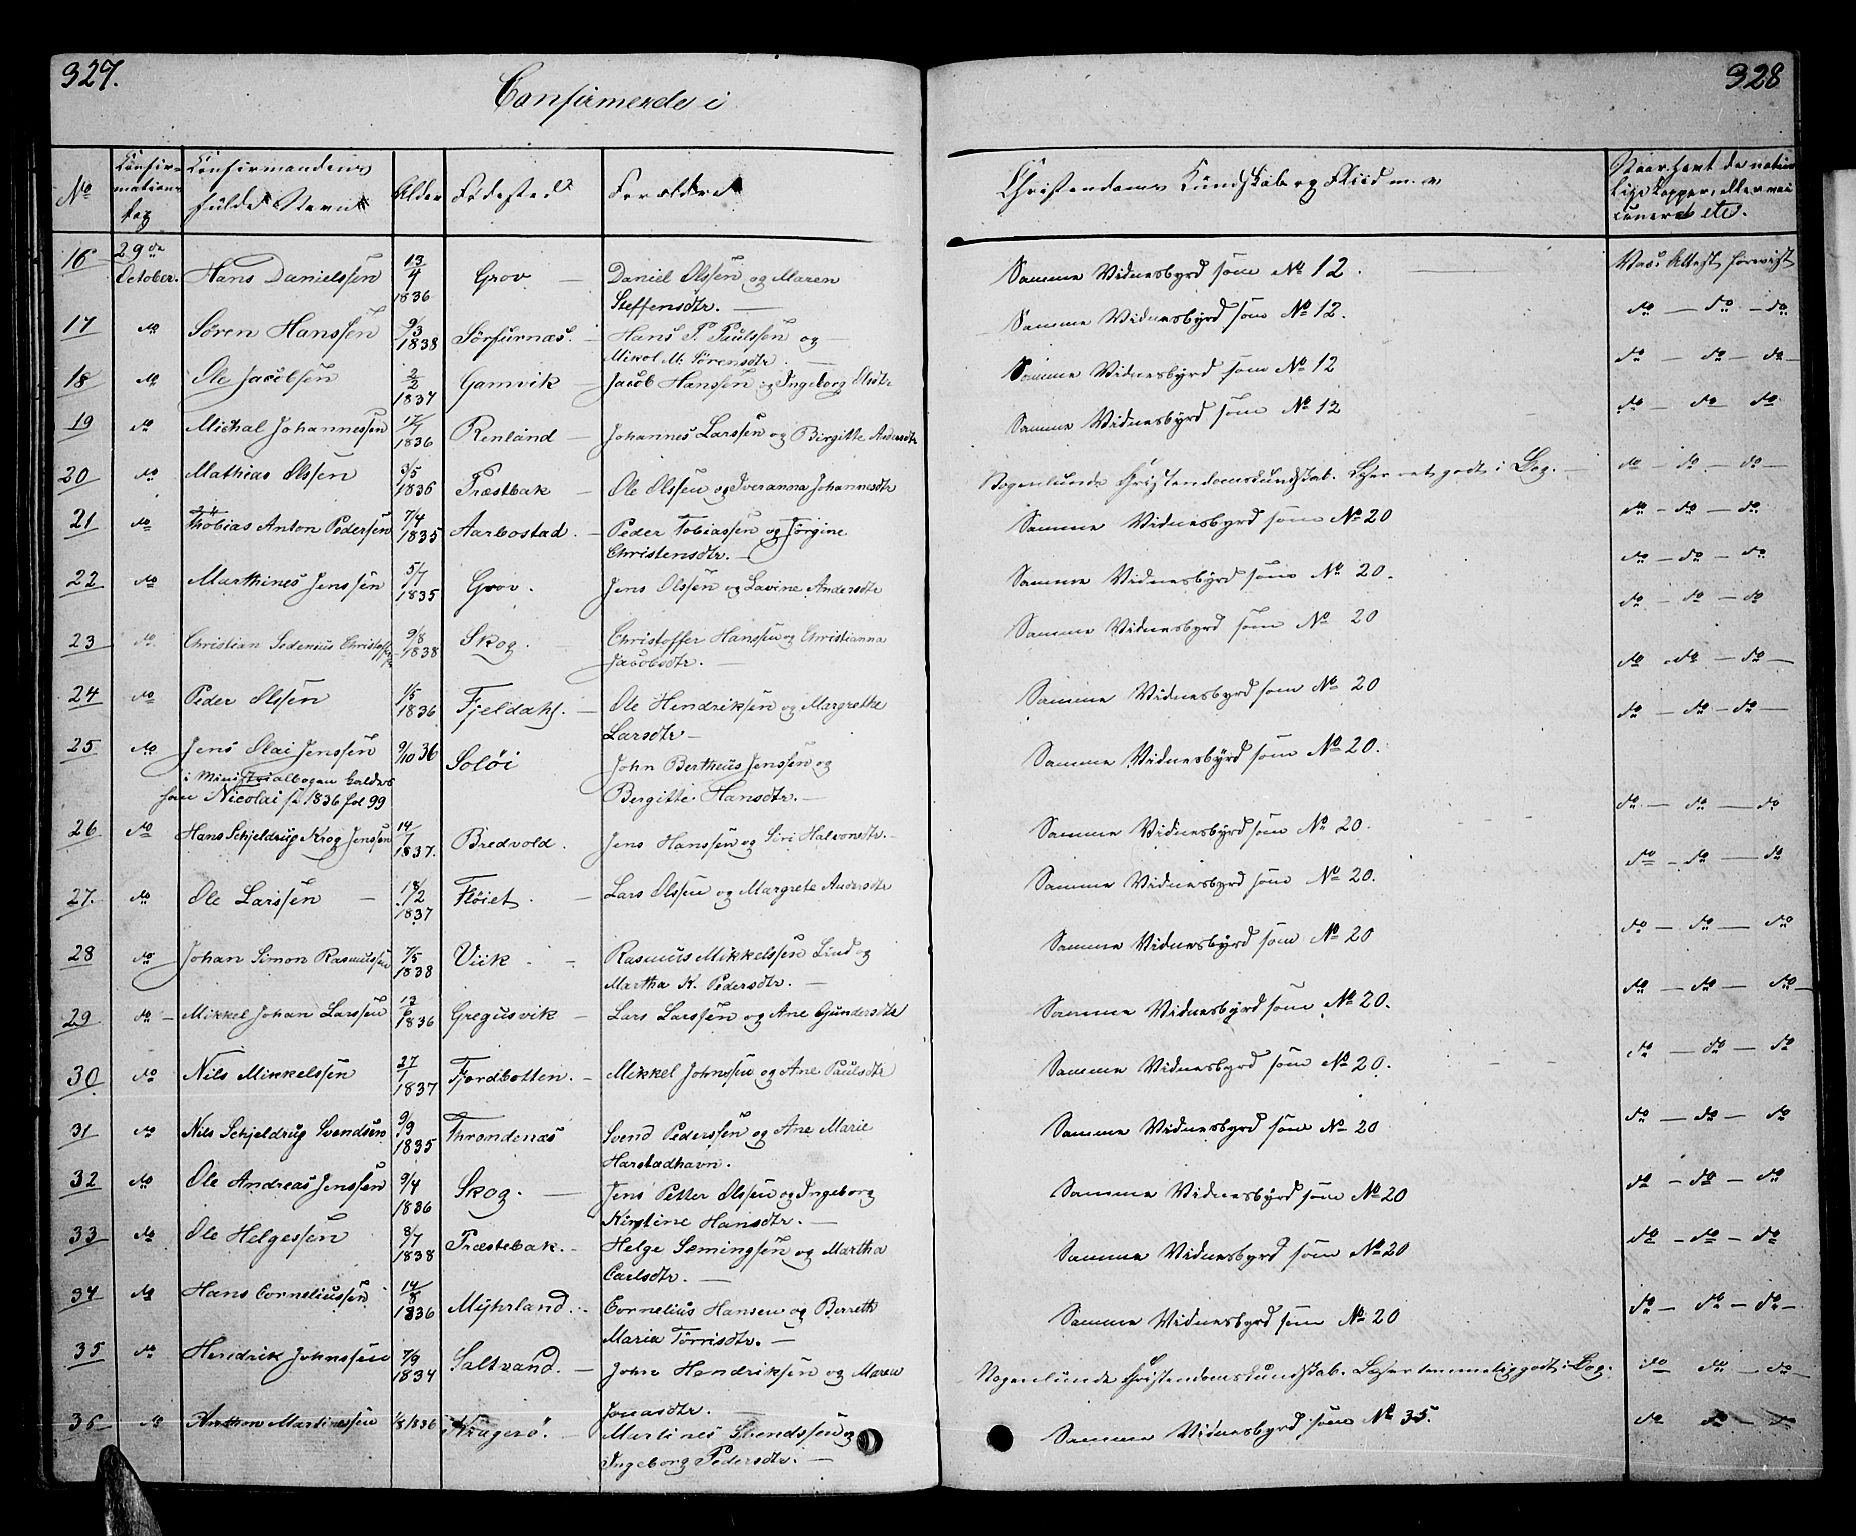 327.
Confirmerde i
328
No
Confirmations dag
Confirmandens fulde Navn
Alder
Födested
Forældre
Christendoms Kundskab og Fliid m. v.
Naar havt de naturlige Kopper, eller vaccineret etc.
16 29de October. Hans Danielssen 13/4 1836 Grov — Daniel Olssen og Maren Steffensdtr. — Samme Vidnesbyrd som No 12. Vac. Attest forevist
17 do Sören Hanssen 9/3 1838 Sörfurnæs. — Hans P. Paulssen og Mikol M. Sörensdtr. — Samme Vidnesbyrd som No 12. do — do — do
18 do Ole Jacobsen 2/2 1837 Gamvik — Jacob Hanssen og Ingeborg Olsdtr Samme Vidnesbyrd som No 12 do — do — do —
19 do Michal Johannessen 17/7 1836 Renland — Johannes Larssen og Birgitte Andersdtr Samme Vidnesbyrd som No 12 do — do — do
20 do Mathias Olssen 9/5 1836 Præstbak — Ole Olssen og Iveranna Johannesdtr Nogenlunde Christendomskundskab. Læser ret godt i Bog. — do — do — do —
21 do Thobias Anton Pedersen 7/4 1835 Aarbostad. — Peder Tobiassen og Jörgine Christensdtr. — Samme Vidnesbyrd som No 20 do — do — do
22 do Marthines Jenssen 5/7 1835 Grov. Jens Olssen og Lavine Andersdtr Samme Vidnesbyrd som No 20. do — do — do
23 do Christian Sedenius 9/8 1838 Skog — Christoffer Hanssen og Christianna Jacobsdtr. — Samme Vidnesbyrd som No 20 do — do — do
24 do Peder Olssen 1/5 1836 Fjeldahl. — Ole Hendriksen og Margrethe Larsdtr — Samme Vidnesbyrd som No 20 do — do — do —
25 do Jens Olai Jenssen 9/10 36 Solöi John Bertheus Jenssen og Bergitte Hansdtr. — Samme Vidnesbyrd som No 20. do — do — do —
i Ministerialbogen kaldes
han Nicolai 1836 fol 99
26 do Hans Schjeldrup Krog Jenssen 14/7 1837. Bredvold. Jens Hanssen og Siri Halvorsdtr. — Samme Vidnesbyrd som No 20. do — do — do
27. do Ole Larssen — 18/12 1837 Flöiet. — Lars Olssen og Margrete Andersdtr Samme Vidnesbyrd som No 20. do — do — do
28 do Johan Simon Rasmussen 7/5 1838 Viik — Rasmus Mikkelssen Lind og Martha K. Pedersdtr. — Samme Vidnesbyrd som No 20 do — do — do
29 do — Mikkel Johan Larssen 13/6 1836 Gregusvik — Lars Larssen og Ane Gundersdtr Samme Vidnesbyrd som No 20. do — do — do —
30 do Nils Mikkelssen 27/1 1837 Fjordbotten. — Mikkel Johnssen og Ane Paulsdtr Samme Vidnesbyrd som No 20. do — do — do
31 do Nils Schjeldrup Svendsen 9/9 1835 Throndenæs Svend Pederssen og Ane Marie Harstadhavn. Samme Vidnesbyrd som No 20 do — do — do
32 do Ole Andreas Jenssen 9/4 1836 Skog. — Jens Petter Olssen og Ingeborg Kirstine Hansdtr. — Samme Vidnesbyrd som No 20 do — do — do
33 do Ole Helgessen 8/7 1838 Præstebak. — Helge Semingsen og Martha Carlsdtr. — Samme Vidnesbyrd som No 20 do — do — do
34 do Hans Corneliussen 14/8 1836 Myhrland. — Cornelius Hansen og Berreth Maria Törrisdtr. — Samme Vidnesbyrd som No 20 do — do — do —
35 do Hendrik Johnssen 7/9 1834 Saltvand. — John Hendriksen og Maren Jonasdtr. — Nogenlunde Christendomskundskab. Læser temmelig godt i Bog. do do — do —
36 do Anthon Martinessen 1/8 1836 Kragerö. — Martines Svendssen og Ingeborg Pedersdtr. — Samme Vidnesbyrd som No 35. do do — do